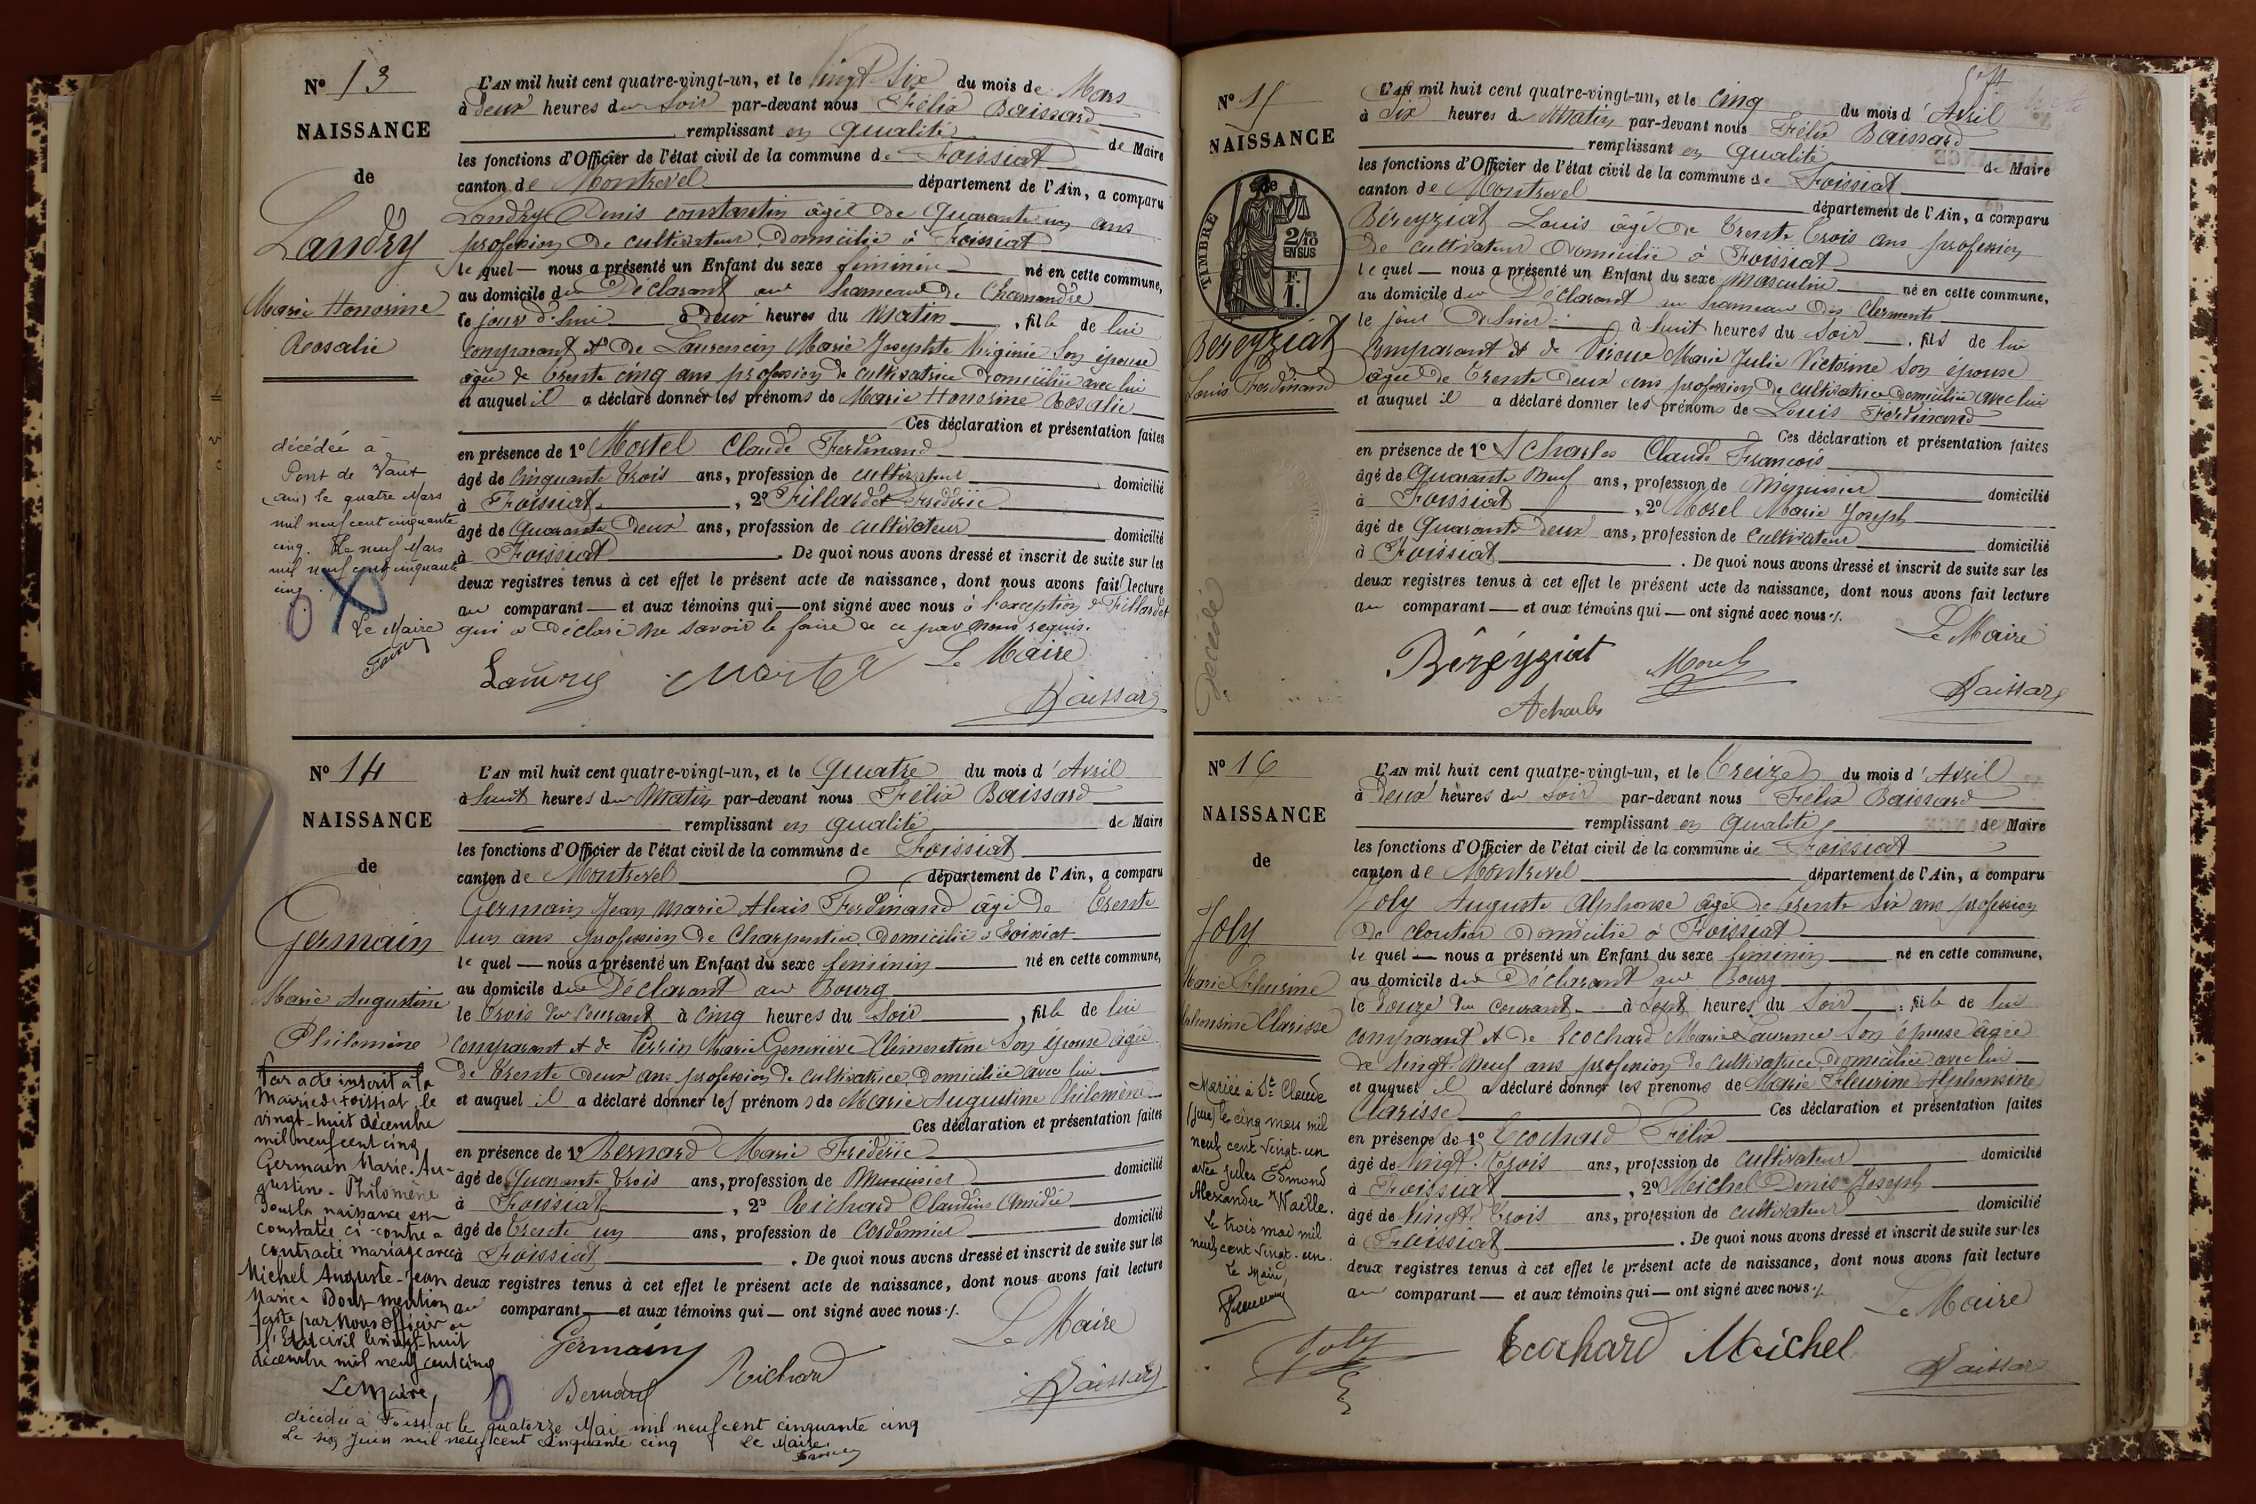 Nº 13
NAISSANCE
de
Landry
Marie Honorine
Rosalie
décédée à
Pont de Vaux
(Ain) le quatre Mars
mil neuf cent cinquante
cinq. Le neuf Mars
mil neuf cent cinquante
cinq.
Le Maire
L'AN mil huit cent quatre-vingt-un, et le Vingt Six du mois de Mars
à Deux heures du Soir par-devant nous Félix Baissard
remplissant en qualité de Maire
les fonctions d'Officier de l'état civil de la commune de Foissiat
canton de Montrevel département de l'Ain, a comparu
Landry Denis constantin âgé de Quarante un ans
profession de cultivateur domicilié à Foissiat
le quel — nous a présenté un Enfant du sexe féminin né en cette commune,
au domicile du Déclarant au hameau de Chamandré
le jour d'hui à Deux heures du Matin, fille de lui
comparant et de Laurencin Marie Josephte Virginie son épouse
âgée de trente cinq ans profession de cultivatrice domiciliée avec lui
et auquel il a déclaré donner les prénoms de Marie Honorine Rosalie
Ces déclaration et présentation faites
en présence de 1º Mostel Claude Ferdinand
âgé de Cinquante trois ans, profession de cultivateur domicilié
à Foissiat, 2º Fillardet Frédéric
âgé de Quarante Deux ans, profession de cultivateur domicilié
à Foissiat. De quoi nous avons dressé et inscrit de suite sur les
deux registres tenus à cet effet le présent acte de naissance, dont nous avons fait lecture
au comparant — et aux témoins qui — ont signé avec nous à l'exception de Fillardet
qui a déclaré ne savoir le faire de ce par nous requis.
Le Maire
Landry
Baissard
Nº 14
NAISSANCE
de
Germain
Marie Augustine
Philomène
Par acte inscrit à la
Mairie de Foissiat, le
vingt-huit décembre
mil neuf cent cinq
Germain Marie-Au-
gustine-Philomène
dont la naissance est
constatée ci-contre a
contracté mariage avec
Michel Auguste-Jean
Marie. Dont mention
faite par Nous officier de
l'Etat civil le vingt-huit
décembre mil neuf cent cinq
Le Maire,
L'AN mil huit cent quatre-vingt-un, et le Quatre du mois d'Avril
à huit heures du Matin par-devant nous Félix Baissard
remplissant en qualité de Maire
les fonctions d'Officier de l'état civil de la commune de Foissiat
canton de Montrevel département de l'Ain, a comparu
Germain Jean Marie Alexis Ferdinand âgé de Trente
un ans profession de Charpentier domicilié à Foissiat
le quel — nous a présenté un Enfant du sexe féminin né en cette commune,
au domicile du Déclarant au Bourg
le trois du courant à cinq heures du Soir, fille de lui
comparant et de Perrin Marie Geneviève Clémentine son épouse âgée
de trente deux ans profession de cultivatrice domiciliée avec lui
et auquel il a déclaré donner les prénoms de Marie Augustine Philomène
Ces déclaration et présentation faites
en présence de 1º Bernard Marie Frédéric
âgé de Quarante trois ans, profession de Menuisier domicilié
à Foissiat, 2º Richard Claudius Amédée
âgé de Trente un ans, profession de Cordonnier domicilié
à Foissiat. De quoi nous avons dressé et inscrit de suite sur les
deux registres tenus à cet effet le présent acte de naissance, dont nous avons fait lecture
au comparant — et aux témoins qui — ont signé avec nous
Le Maire
Germain
Richard
Bernard
Baissard
décédée à Foissiat le quatorze Mai mil neuf cent cinquante cinq
Le six Juin mil neuf cent cinquante cinq Le Maire
Nº 15
NAISSANCE
de
TIMBRE
2/10 EN SUS
F. 1.
Béreyziat
Louis Ferdinand
Décédé
L'AN mil huit cent quatre-vingt-un, et le cinq du mois d'Avril
à Six heures du Matin par-devant nous Félix Baissard
remplissant en qualité de Maire
les fonctions d'Officier de l'état civil de la commune de Foissiat
canton de Montrevel département de l'Ain, a comparu
Béreyziat Louis âgé de Trente Trois ans profession
de cultivateur domicilié à Foissiat
le quel — nous a présenté un Enfant du sexe Masculin né en cette commune,
au domicile du Déclarant au hameau des Clermonts
le jour d'hier à huit heures du Soir, fils de lui
comparant et de Viroux Marie Julie Victorine son épouse
âgée de Trente Deux ans profession de cultivatrice domiciliée avec lui
et auquel il a déclaré donner les prénoms de Louis Ferdinand
Ces déclaration et présentation faites
en présence de 1º Acharles Claude François
âgé de Quarante Neuf ans, profession de Menuisier domicilié
à Foissiat, 2º Morel Marie Joseph
âgé de Quarante Deux ans, profession de cultivateur domicilié
à Foissiat. De quoi nous avons dressé et inscrit de suite sur les
deux registres tenus à cet effet le présent acte de naissance, dont nous avons fait lecture
au comparant — et aux témoins qui — ont signé avec nous
Le Maire
Béréyziat
Morel
Acharles
Baissard
Nº 16
NAISSANCE
de
Joly
Marie Fleurine
Alphonsine Clarisse
Mariée à St Claude
(Jura) le cinq mars mil
neuf cent vingt-un
avec Jules Edmond
Alexandre Waille.
Le trois mai mil
neuf cent vingt-un.
Le Maire,
L'AN mil huit cent quatre-vingt-un, et le Treize du mois d'Avril
à Deux heures du Soir par-devant nous Félix Baissard
remplissant en qualité de Maire
les fonctions d'Officier de l'état civil de la commune de Foissiat
canton de Montrevel département de l'Ain, a comparu
Joly Auguste Alphonse âgé de trente Six ans profession
de cloutier domicilié à Foissiat
le quel — nous a présenté un Enfant du sexe féminin né en cette commune,
au domicile du Déclarant au Bourg
le Douze du courant à Sept heures du Soir, fille de lui
comparant et de Ecochard Marie Laurence son épouse âgée
de Vingt Neuf ans profession de cultivatrice domiciliée avec lui
et auquel il a déclaré donner les prénoms de Marie Fleurine Alphonsine
Clarisse Ces déclaration et présentation faites
en présence de 1º Ecochard Félix
âgé de Vingt Trois ans, profession de cultivateur domicilié
à Foissiat, 2º Michel Denis Joseph
âgé de Vingt Trois ans, profession de cultivateur domicilié
à Foissiat. De quoi nous avons dressé et inscrit de suite sur les
deux registres tenus à cet effet le présent acte de naissance, dont nous avons fait lecture
au comparant — et aux témoins qui — ont signé avec nous
Le Maire
Joly
Ecochard Michel
Baissard